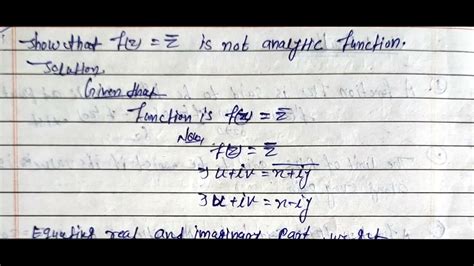 show that f(z) = z̅ is not analytic function.
Solution.
Given that
function is f(z) = z̅
Now,
f(z) = z̅
⇒ u+iv = \overline{x+iy}
⇒ u+iv = x-iy
Equating real and imaginary part, we get